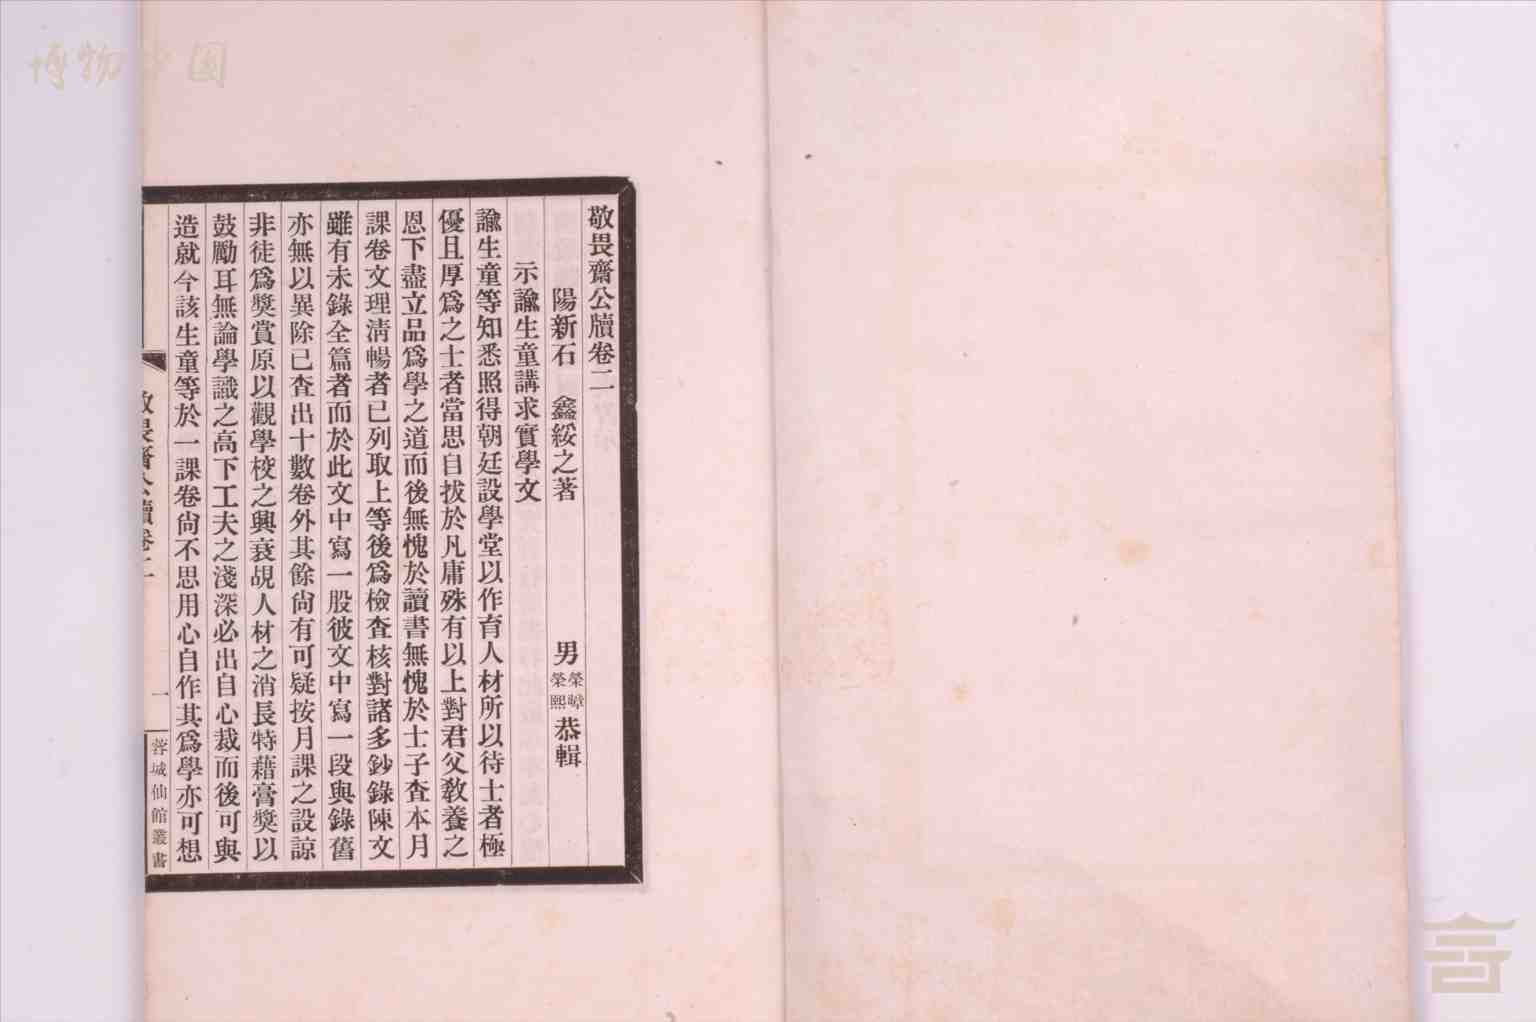 敬畏齋公牘卷二
陽新石　鑫綏之著　男榮暲榮熙恭輯
示諭生童講求實學文
諭生童等知悉照得朝廷設學堂以作育人材所以待士者極
優且厚爲之士者當思自拔於凡庸殊有以上對君父教養之
恩下盡立品爲學之道而後無愧於讀書無愧於士子查本月
課卷文理淸暢者已列取上等後爲檢查核對諸多鈔錄陳文
雖有未錄全篇者而於此文中寫一股彼文中寫一段與錄舊
亦無以異除已查出十數卷外其餘尙有可疑按月課之設諒
非徒爲獎賞原以觀學校之興衰覘人材之消長特藉膏獎以
鼓勵耳無論學識之高下工夫之淺深必出自心裁而後可與
造就今該生童等於一課卷尙不思用心自作其爲學亦可想
敬畏齋公牘卷二
一
蓉城仙館叢書
博物中國